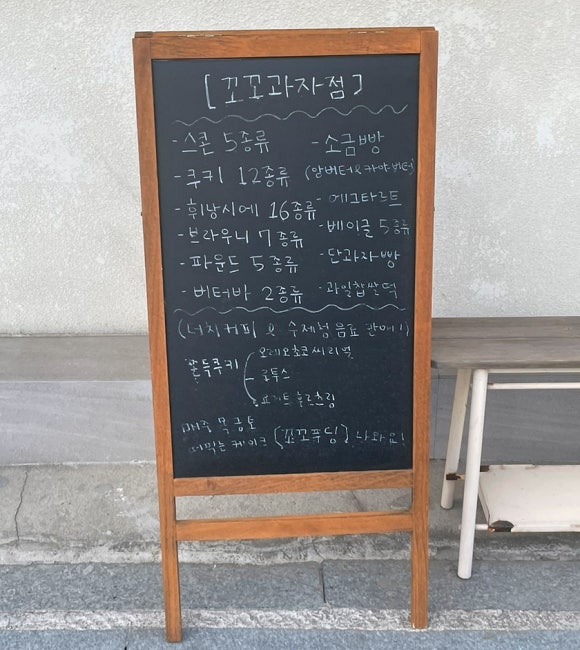 [꼬꼬과자점]
- 스콘 5종류
- 쿠키 12종류
- 휘낭시에 16종류
- 브라우니 7종류
- 파운드 5종류
- 버터바 2종류
- 소금빵
(앙버터&카야버터)
- 에그타르트
- 베이글 5종류
- 단과자빵
- 과일찹쌀떡
(더치커피 & 수제청음료 판매!)
쫀득쿠키
오레오초코씨리얼
후르츠링
매주 목금토
떠먹는케이크 [꼬꼬푸딩] 나와요!